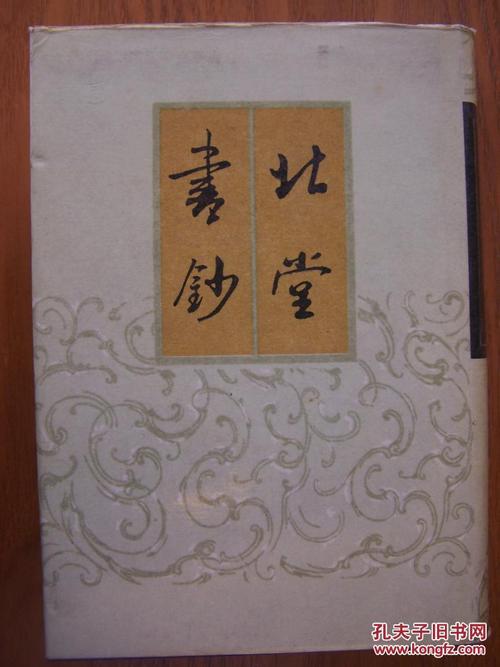 北堂
書鈔
孔夫子旧书网
www.kongfz.com